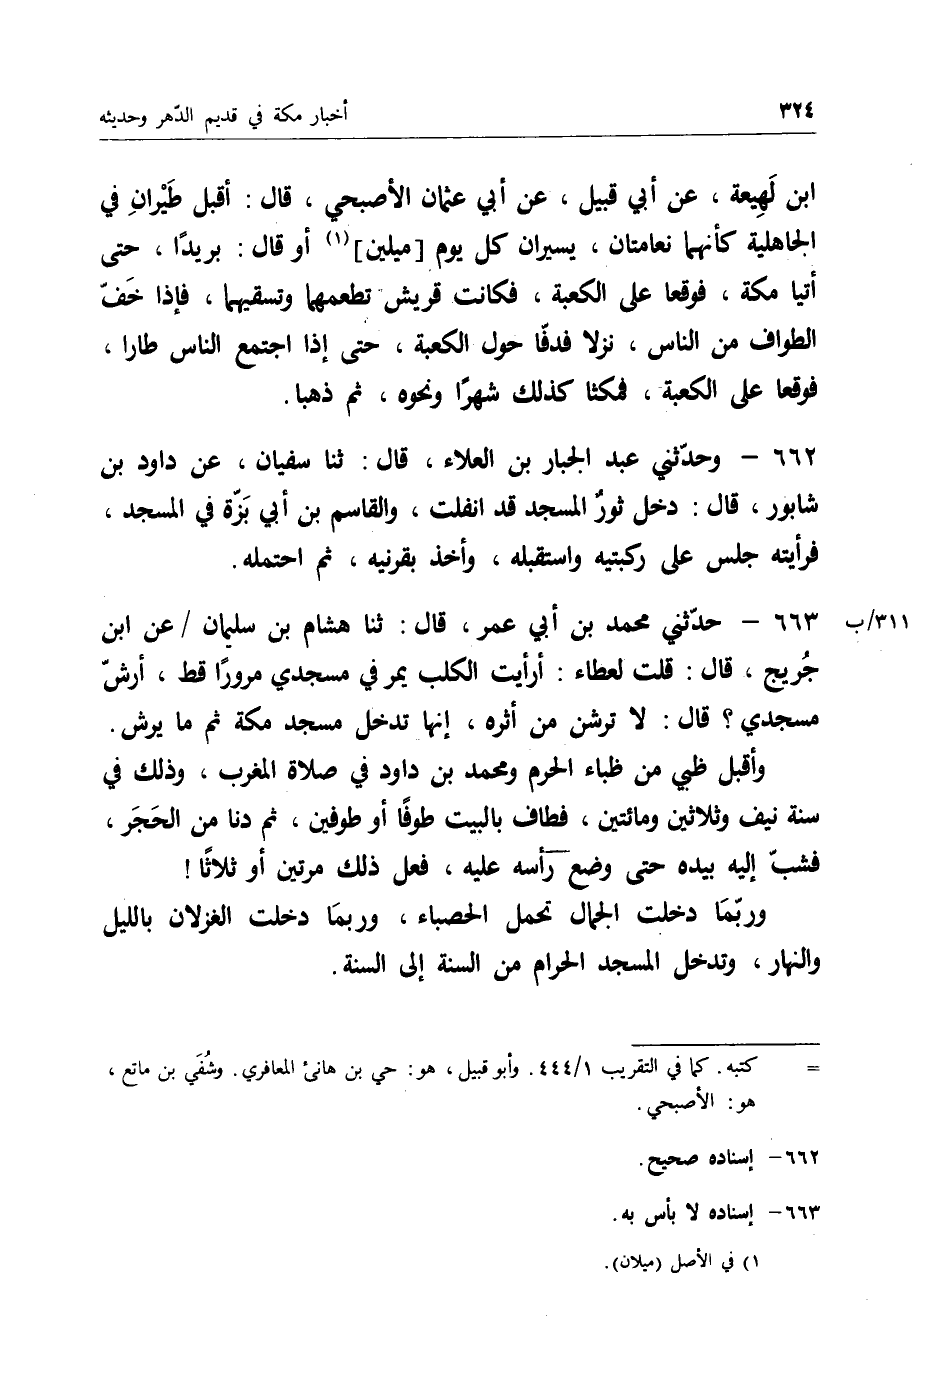 ٣٢٤ أخبار مكة في قديم الدّهر وحديثه
ابن لَهِيعة ، عن أبي قبيل ، عن أبي عثمان الأصبحي ، قال : أقبل طَيْرانِ في
الجاهلية كأنهما نعامتان ، يسيران كل يوم [ميلين](١) أو قال : بريدًا ، حتى
أتيا مكة ، فوقعا على الكعبة ، فكانت قريش تطعمهما وتسقيهما ، فإذا خَفّ
الطواف من الناس ، نزلا فدفّا حول الكعبة ، حتى إذا اجتمع الناس طارا ،
فوقعا على الكعبة ، فمكثا كذلك شهرًا ونحوه ، ثم ذهبا.
٦٦٢ – وحدّثني عبد الجبار بن العلاء ، قال : ثنا سفيان ، عن داود بن
شابور ، قال : دخل ثورٌ المسجد قد انفلت ، والقاسم بن أبي بَزّة في المسجد ،
فرأيته جلس على ركبتيه واستقبله ، وأخذ بقرنيه ، ثم احتمله.
٣١١/ب ٦٦٣ – حدّثني محمد بن أبي عمر ، قال : ثنا هشام بن سليمان / عن ابن
جُريج ، قال : قلت لعطاء : أرأيت الكلب يمر في مسجدي مرورًا قط ، أرشّ
مسجدي ؟ قال : لا ترشن من أثره ، إنها تدخل مسجد مكة ثم ما يرش.
وأقبل ظبي من ظباء الحرم ومحمد بن داود في صلاة المغرب ، وذلك في
سنة نيف وثلاثين ومائتين ، فطاف بالبيت طوفًا أو طوفين ، ثم دنا من الحَجَر ،
فشبّ إليه بيده حتى وضع رأسه عليه ، فعل ذلك مرتين أو ثلاثًا !
وربّمَا دخلت الجمال تحمل الحصباء ، وربمَا دخلت الغزلان بالليل
والنهار ، وتدخل المسجد الحرام من السنة إلى السنة.
= كتبه. كما في التقريب ٤٤٤/١. وأبو قبيل ، هو : حي بن هانئ المعافري. وشُفَي بن ماتع ،
هو : الأصبحي.
٦٦٢– إسناده صحيح.
٦٦٣– إسناده لا بأس به.
١) في الأصل (ميلان).